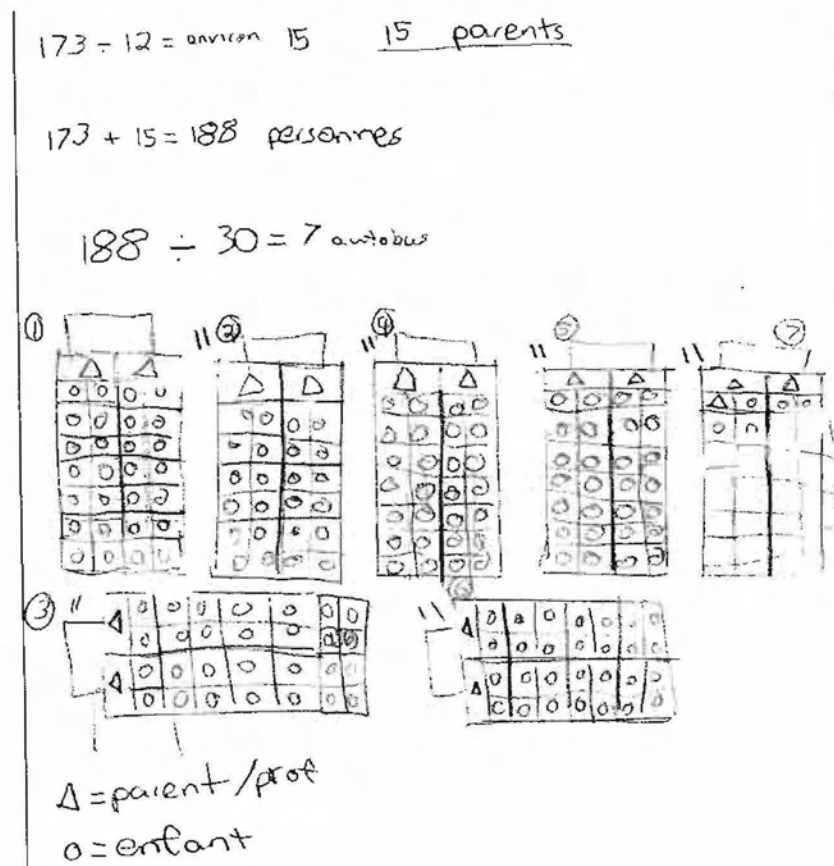 173 ÷ 12 = environ 15 15 parents
173 + 15 = 188 personnes
188 ÷ 30 = 7 autobus
① ② ④ ⑤ ⑦
③ ⑥
Δ = parent / prof
o = enfant